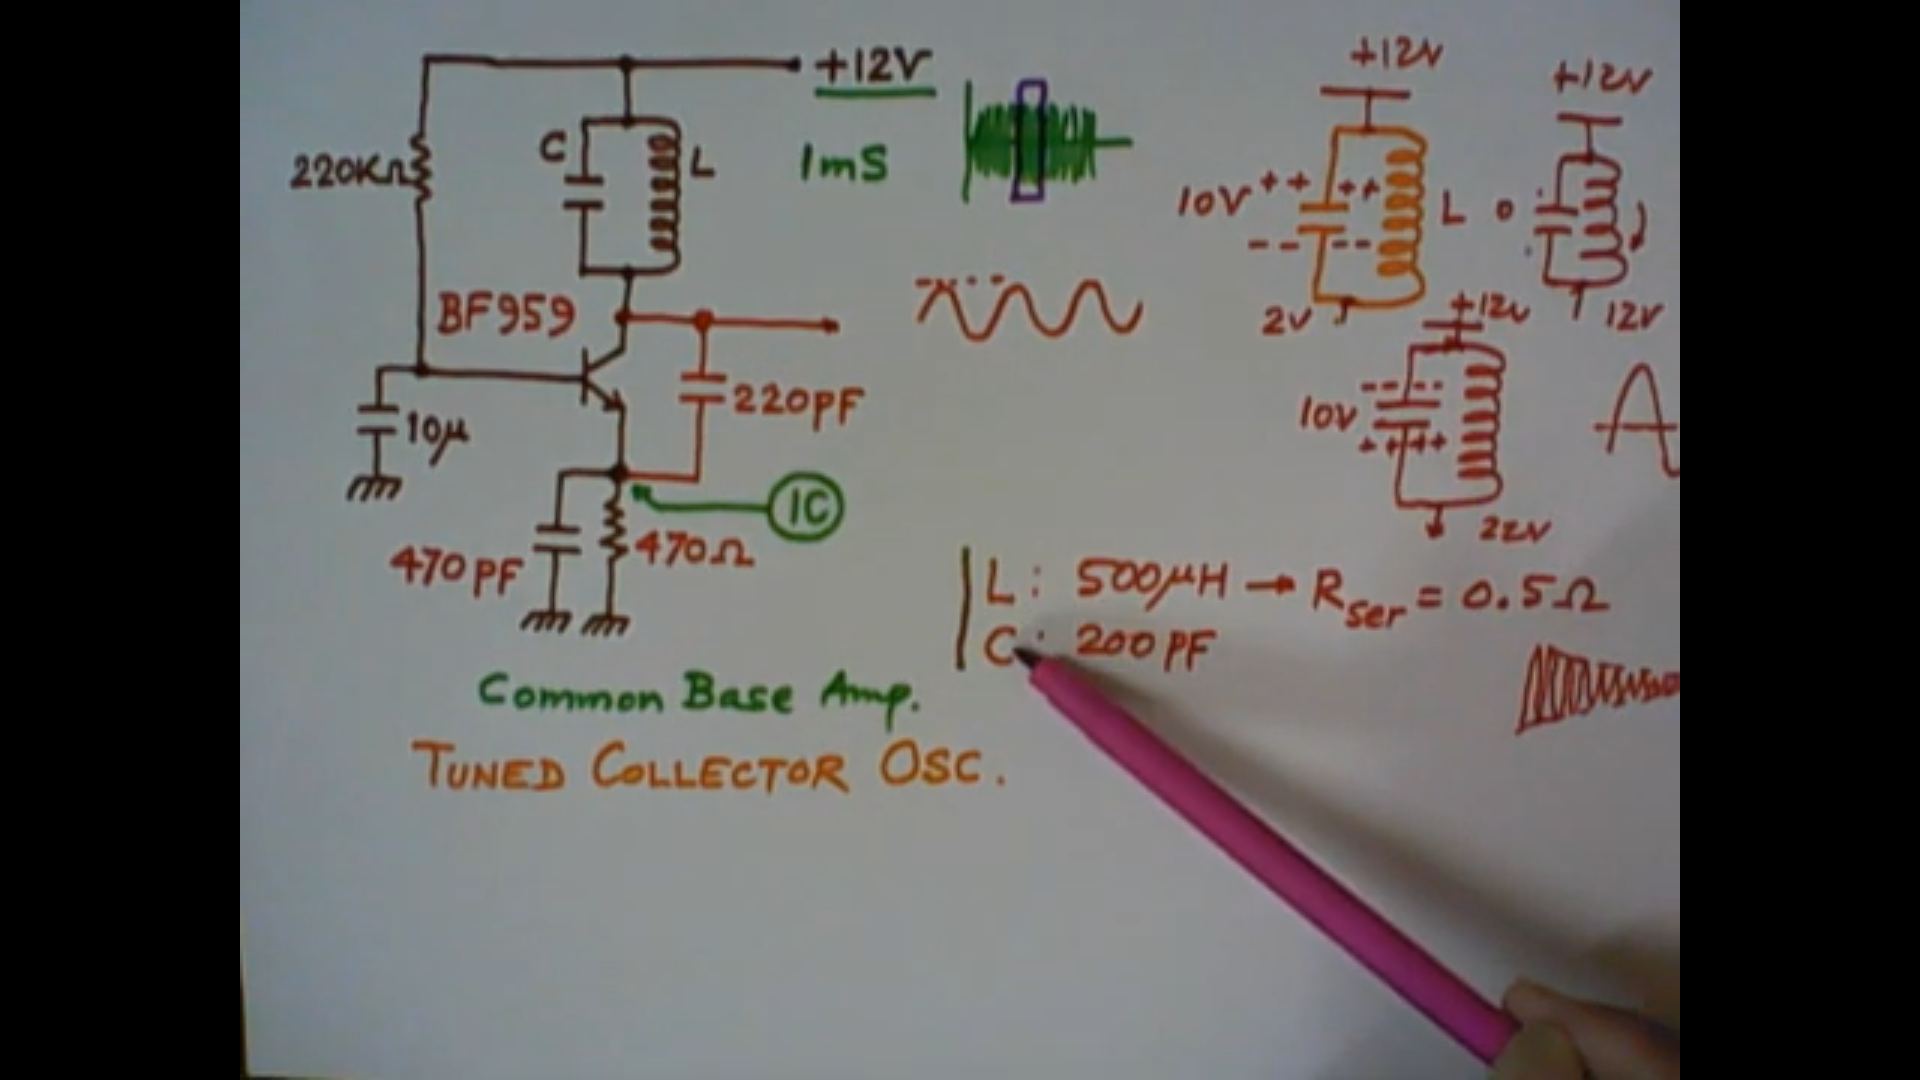 +12V
220KΩ
C
L
1mS
BF959
10μ
220PF
1C
470PF
470Ω
Common Base Amp.
TUNED COLLECTOR OSC.
+12V
10V ++ ++
-- --
L
2V
+12V
0
12V
+12V
10V
----
++++
22V
L: 500μH → Rser = 0.5Ω
C: 200PF